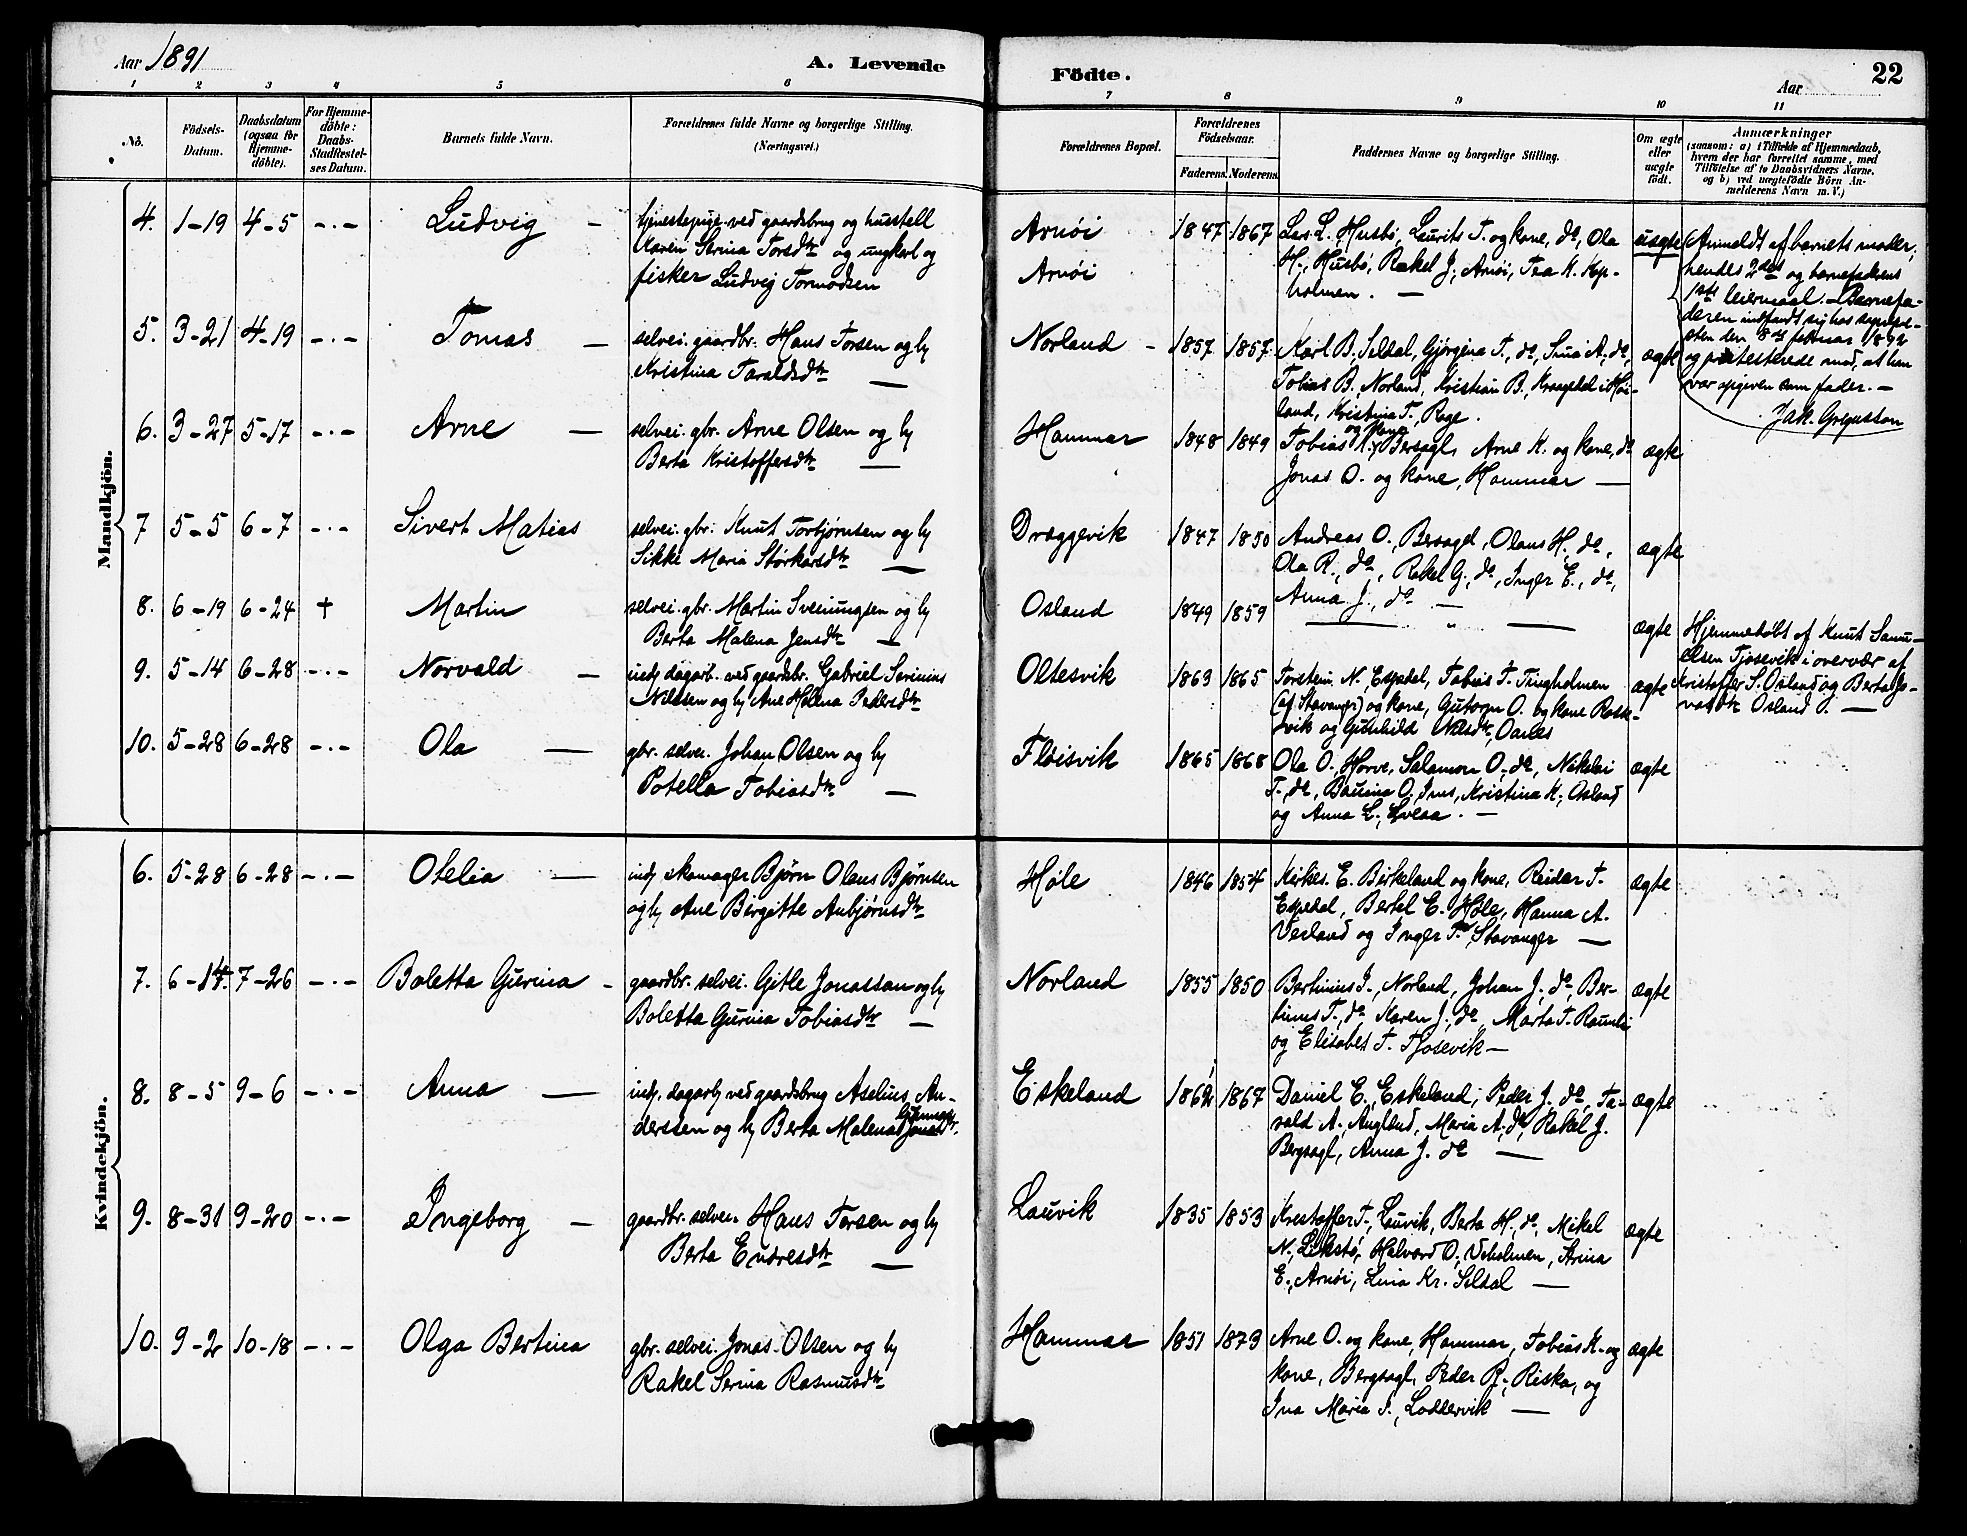 Aar 1891
A. Levende
Födte.
Aar
22
1 2 3 4 5 6 7 8 9 10 11
No.
Födsels-
Datum.
Daabsdatum
(ogsaa for
Hjemme-
döbte).
For Hjemme-
döbte:
Daabs-
Stadfæstel-
ses Datum.
Barnets fulde Navn.
Forældrenes fulde Navne og borgerlige Stilling.
(Næringsvei.)
Forældrenes Bopæl.
Forældrenes
Födselsaar.
Faderens. Moderens.
Faddernes Navne og borgerlige Stilling.
Om ægte
eller
uægte
födt.
Anmærkninger
(saasom: a) i Tilfælde af Hjemmedaab,
hvem der har forrettet samme, med
Tilföielse af to Daabsvidners Navne.
og b) ved uægtefödte Börn An-
melderens Navn m. V.)
Mandkjön.
4. 1-19 4-5 -.- Ludvig —
tjenestepige ved gaardsbrug og husstell
Karen Serina Torsdtr og ungkarl og
fisker Ludvig Tormodsen
Arnöi
Arnöi
1847 1867
Lars L. Husbö, Laurits T. og kone, do, Ola
H., Husbö, Rakel J., Arnöi, Tea K. Kyp-
holmen. —
uægte
(Anmeldt af barnets moder,
hendes 2det og barnefaderens
1ste leiermaal. – Barnefa-
deren indfandt sig hos sogepre-
sten den 8de februar 1892
og protesterede mod, at han
var opgiven som fader. –
Jak. Gregusson
5. 3-21 4-19 -.- Tomas —
selvei. gaardbr. Hans Torsen og h
Kristina Taraldsdtr —
Norland -
1857 1857
Karl B. Seldal, Gjörgina T., do, Sina A., do,
Tobias B. Norland, Kristian B., Kraagedal i Höi-
land, Kristina T., Rage.
ægte
6. 3-27 5-17 -.- Arne —
selvei. gbr. Arne Olsen og h
Berta Kristoffersdtr —
Hammar
1848 1849
og kone
Tobias K., Bersagl, Arne K. og kone, do
Jonas O. og kone, Hammar —
ægte
7 5-5 6-7 -.- Sivert Matias
selvei. gbr. Knut Torbjørnsen og h
Sikke Maria Storkarsdtr —
Dræggevik
1847 1850
Andreas O., Bersagel, Olaus H., do,
Ola R., do, Rakel G., do, Inger E., do,
Anna J., do —
ægte
8. 6-19 6-24 + Martin
selvei. gbr. Martin Sveinungsen og h
Berta Malena Jensdtr —
Osland
1849 1859
— „ —
ægte
Hjemmedøbt af Knut Samu-
elsen Tjosevik i overvær af
Kristoffer S. Osland og Berta
Osland. —
9. 5-14 6-28 -.- Norvald —
indg. dagarb. ved gaardsbr. Gabriel Serinius
Nilssen og h Ane Helena Pedersdtr
Oltesvik
1863 1865
Torstein N., Espedal, Tobias T. Tingholmen
(af Stavanger) og kone, Gutorm O. og kone
vik og Gunhild Nilsdtr, Oanes
ægte
10. 5-28 6-28 -.- Ola —
gbr. selvei. Johan Olsen og h
Potella Tobiasdtr —
Flöisvik
1865 1868
Ola O., Horve, Salamon O., do, Nikolai
T., do, Bauina O., Ims, Kristina K., Osland
og Anna L., —
ægte
Kvindekjön.
6. 5-28 6-28 -.- Otelia —
indg. skomager Bjørn Olaus Bjørnsen
og h Ane Birgitte Anbjørnsdtr
Høle
1846 1854
E. Birkeland og kone, Reidar T.
Espedal, Bertel E. Høle, Hanna A.
Verland og Inger T., Stavanger —
ægte
7. 6-14 7-26 -.- Boletta Gurina -
gaardbr. selvei. Gitle Jonassan og h
Boletta Gurina Tobiasdtr —
Norland
1855 1850
Bertinius J., Norland, Johan J., do, Ber-
tinus T., do, Karen J., do, Marta T. Raunli
og Elisabet T. Tjosevik —
ægte
8. 8-5 9-6 -.- Anna —
indg. dagarb ved gaardsbrug Aselius An-
derssen og h Berta Malena
Eskeland
1862 1867
Daniel E., Eskeland, Peder J. do, Ta-
rald A. Augland, Maria A., do, Rakel J.
Bergsagl, Anna J. do —
ægte
9. 8-31 9-20 -.- Ingeborg —
gaardbr. selvei. Hans Torsen og h
Berta Endresdtr —
Lauvik
1835 1853
Kristoffer T., Lauvik, Berta H., do, Mikel
N., Halvard O., Veholmen, Arina
E., Arnöi, Lina Kr. Seldal —
ægte
10. 9-2 10-18 -.- Olga Bertina
gbr. selvei. Jonas Olsen og h
Rakel Serina Rasmusdtr
Hammar
1851 1873
Arne O. og kone, Hammar, Tobias K. og
kone, Bergsagl, Peder R., Riska, og
Ina Maria S., Loddervik —
ægte